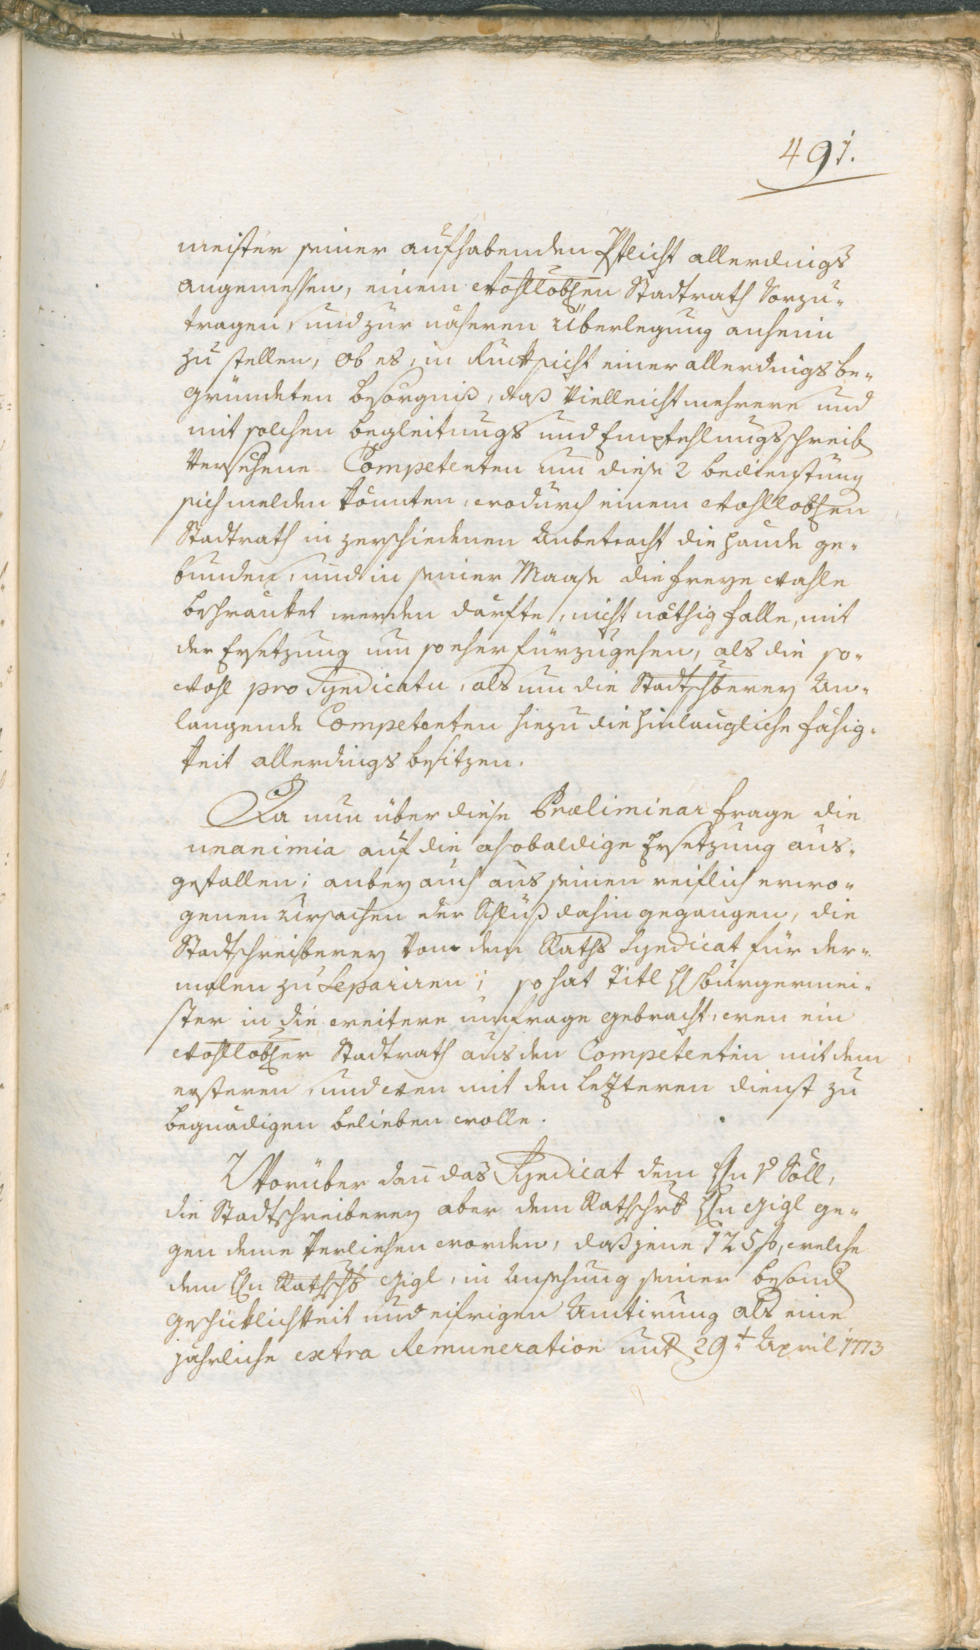 491.
meister seiner aufhabenden Pflicht allerdings
angemessen, einem wohllobl:en Stadtrath vorzu-
tragen, und zur näheren Überlegung anheim
zu stellen, ob es, in Rücksicht einer allerdings be-
gründeten besorgniß, daß vielleicht mehrere und
mit solchen begleitungs und Empfehlungsschreib
versehene Competenten um diese 2 bedienstung
sich melden könnten, wodurch einem wohllobl:en
Stadtrath in zerschiedenen Anbetracht die hände ge-
bunden, und in seiner Maase die freye wahle
beschränket werden dürfte, nicht nöthig falle, mit
der Ersetzung um so eher fürzugehen, als die so-
wohl pro Syndicatu, als um die Stadtschberey An-
langende Competenten hiezu die hinlangliche fähig-
keit allerdings besitzen.
Da nun über diese Præliminar frage die
unanimia auf die alsobaldige Ersetzung aus-
gefallen; anbey auch aus seinen reiflich erwo-
genen Ursachen der Schluß dahin gegangen, die
Stadtschreiberey von dem Raths Syndicat für der-
malen zu Separiren; so hat Titl H burgermei-
ster in die weitere umfrage gebracht, wen ein
wohllobl:er Stadtrath aus den Competenten mit dem
ersteren, und wen mit den lezteren dienst zu
begnädigen belieben wolle.
Worüber dan das Syndicat dem Hn Söll,
die Stadtschreiberey aber dem Rathschrb Hn Gigl ge-
gen deme verliehen worden, daß jene 125 f, welche
dem Hn Rathschb Gigl, in Ansehung seiner besond
geschicklichkeit und eifrigen Amtirung als eine
jährliche extra Remuneration unt 29t April 1773